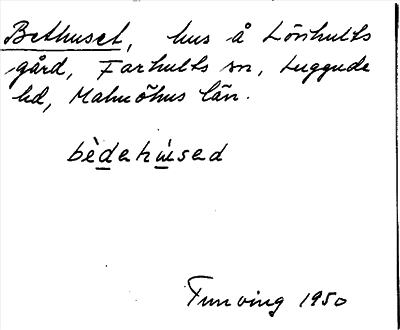 Bethuset, hus å Lönhults
gård, Farhults sn, Luggude
hd, Malmöhus län.
bèdehùsed
Tunving 1950